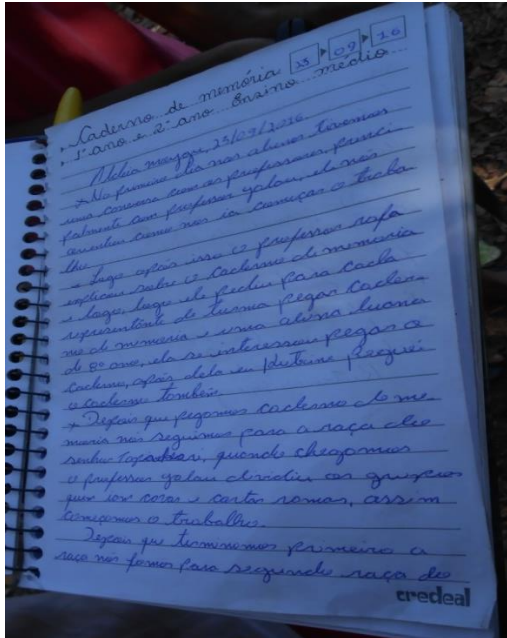 23 09 16
Caderno de memória
1º ano e 2º ano Ensino médio
Aldeia 23/09/2016
* No primeiro dia nos alunos tivemos
uma conversa com os professores, princi
palmente com professor galau, ele nos
como nos ia começas o traba
lho
* Logo após isso o professor rafa
explicou sobre o Caderno de memoria
e logo, logo ele pediu para cada
representante de turma pegar cader
no de memoria e uma aluna luana
de 8º ano, ela se interessou pegar o
caderno, após dela eu peguei
o caderno também.
* Depois que pegamos caderno de me
moria nos seguimos para a raça deo
senhor quando chegamos
o professor galau dividiu os grupos
quer ior coras e cortar ramas, assim
começamos o trabalho.
Depois que terminamos primeira a
raça nós fomos para segunda raça do
credeal